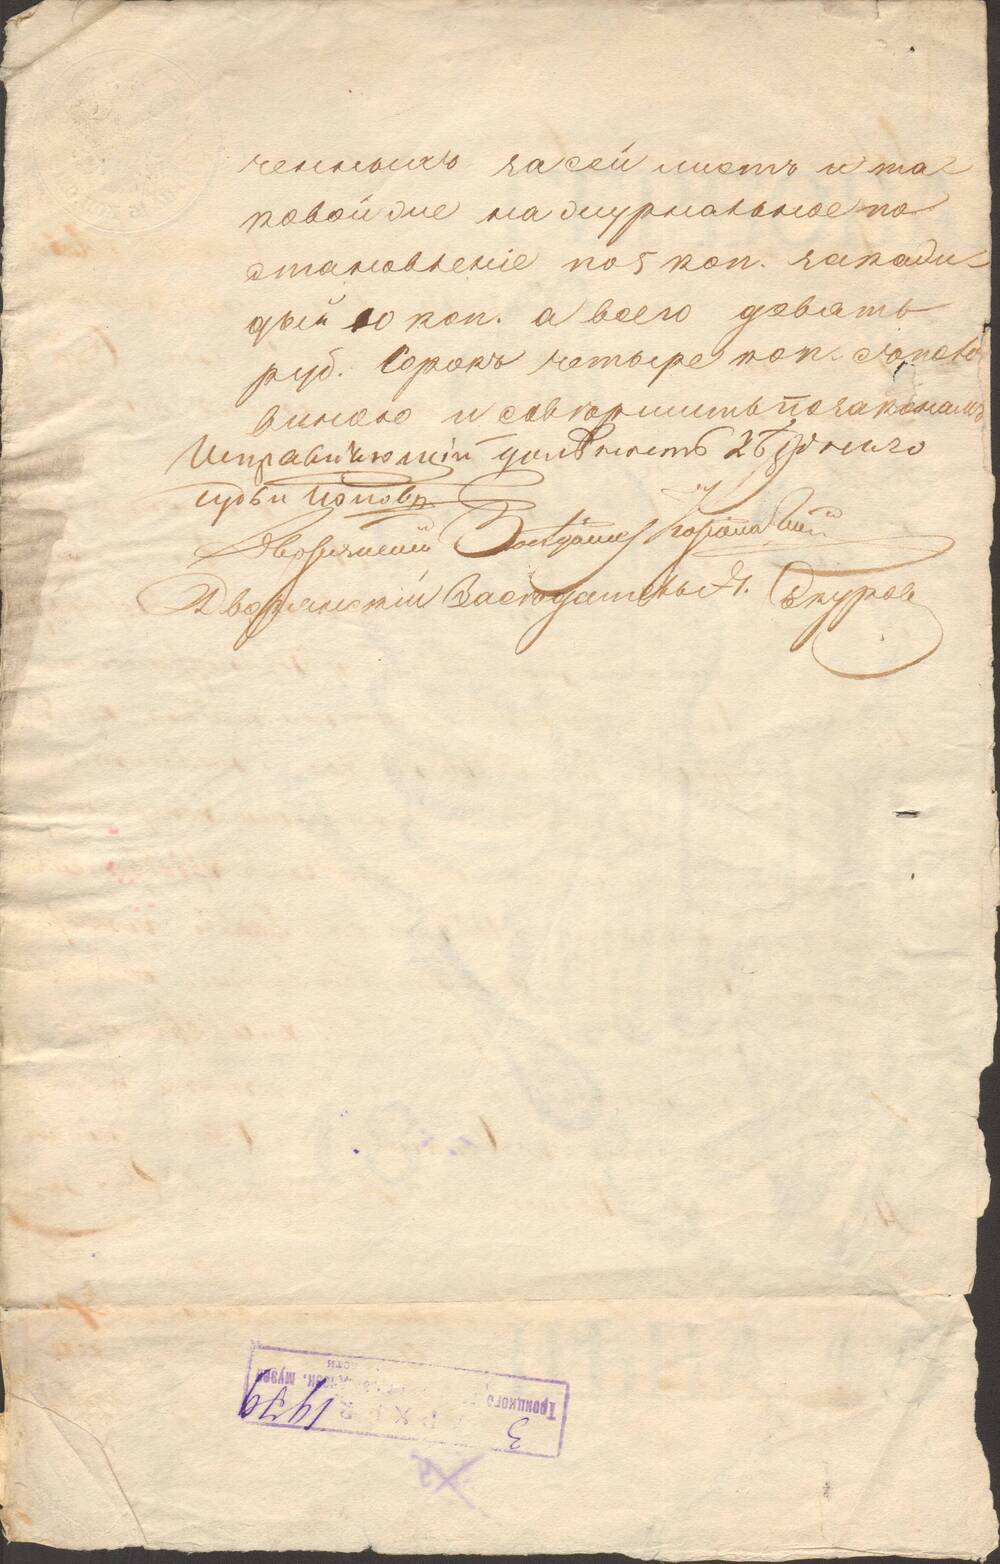 ченныхъ за сей листъ и та-
ковой же на журнальное по
становленіе по 5 коп. за кажд
дый 10 коп. а всего девять
руб. Сорокъ четыре коп. съ полов
виною и совершить по законамъ
Исправляющій должность
судьи Поповъ
Дворянскій Заседатель
Дворянскій Заседатель
Троицкого
музея
1939
3